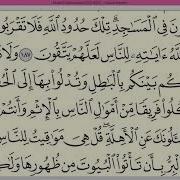 ونَ فِي ٱلْمَسَٰجِدِ ۗ تِلْكَ حُدُودُ ٱللَّهِ فَلَا تَقْرَبُو
للَّهُ ءَايَٰتِهِۦ لِلنَّاسِ لَعَلَّهُمْ يَتَّقُونَ ١٨٧ وَلَا
كُم بَيْنَكُم بِٱلْبَٰطِلِ وَتُدْلُوا۟ بِهَآ إِلَى ٱلْحُ
كُلُوا۟ فَرِيقًا مِّنْ أَمْوَٰلِ ٱلنَّاسِ بِٱلْإِثْمِ وَأَنتُمْ
لُونَكَ عَنِ ٱلْأَهِلَّةِ ۖ قُلْ هِىَ مَوَٰقِيتُ لِلنَّاسِ
ٱلْبِرُّ بِأَن تَأْتُوا۟ ٱلْبُيُوتَ مِن ظُهُورِهَا وَلَٰكِ